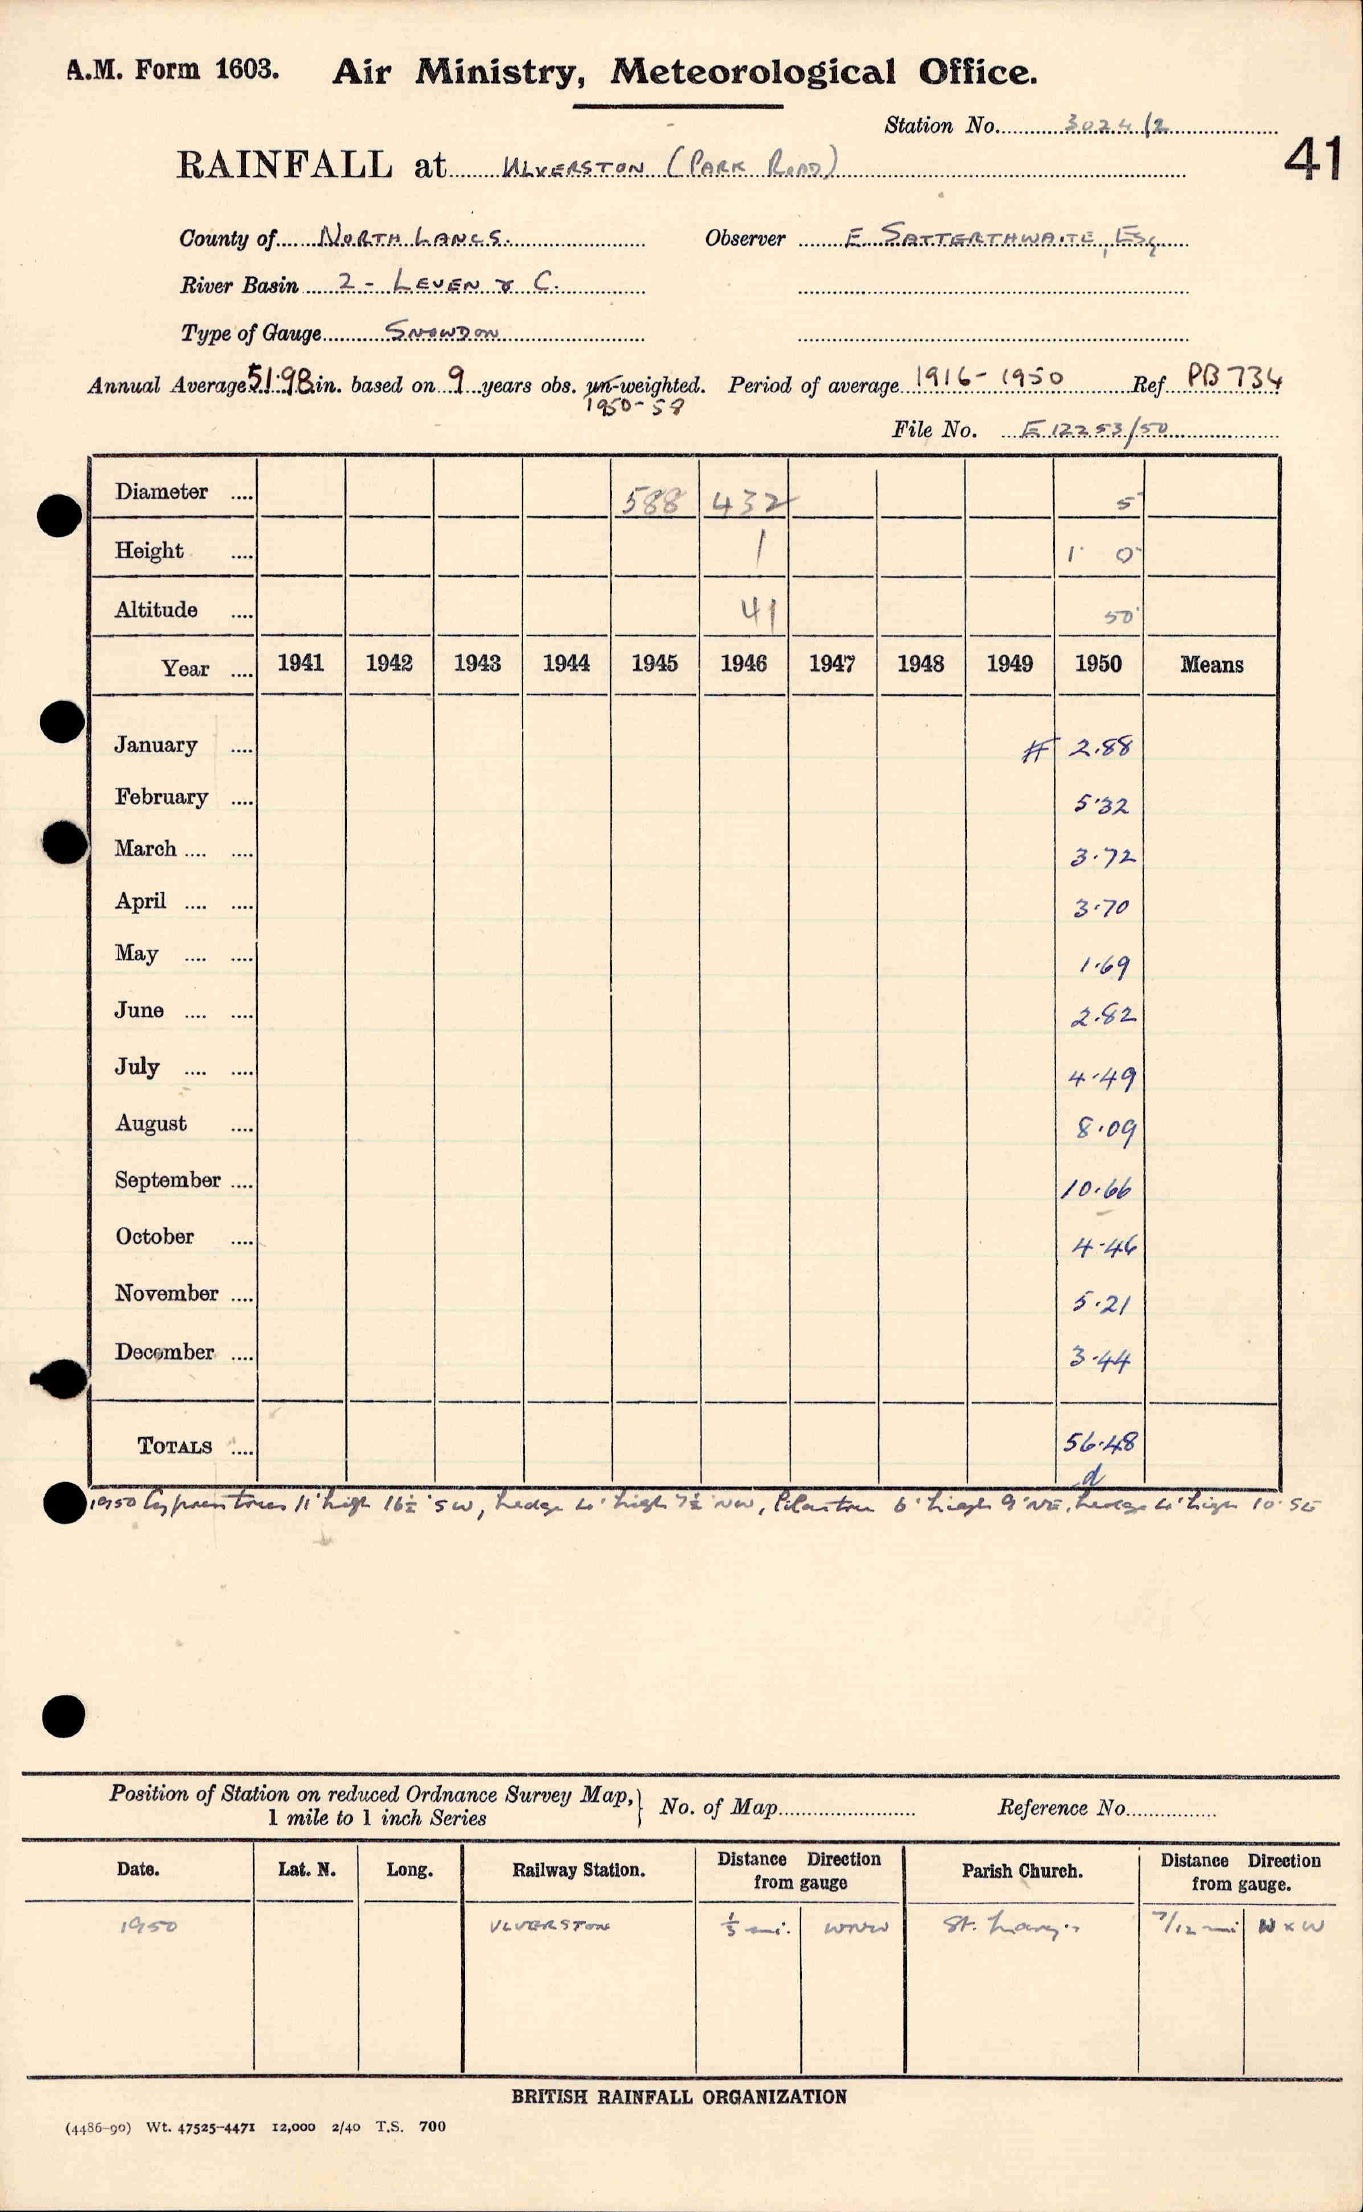 A.M. Form 1603. Air Ministry, Meteorological Office.
Station No. 3024/2
41
RAINFALL at ULVERSTON (PARK ROAD)
County of NORTH LANCS. Observer E. SATTERTHWAITE, ESQ
River Basin 2 - LEVEN & C.
Type of Gauge SNOWDON
Annual Average 51.98 in. based on 9 years obs. un-weighted. Period of average 1916-1950 Ref PB 734
1950-58
File No. E 12253/50
Diameter .... 588 432 5
Height .... 1 1 0
Altitude .... 41 50
Year .... 1941 1942 1943 1944 1945 1946 1947 1948 1949 1950 Means
January .... # 2.88
February .... 5.32
March .... .... 3.72
April .... .... 3.70
May .... .... 1.69
June .... .... 2.82
July .... .... 4.49
August .... 8.09
September .... 10.66
October .... 4.46
November .... 5.21
December .... 3.44
TOTALS .... 56.48
d
1950 Cypress trees 11' high 16½' SW, hedge 4' high 7½' NW, tree 6' high 9' NE, hedge 4' high 10' SE
Position of Station on reduced Ordnance Survey Map, 1 mile to 1 inch Series } No. of Map Reference No.
Date. Lat. N. Long. Railway Station. Distance Direction from gauge Parish Church. Distance Direction from gauge.
1950 ULVERSTON ⅓ mi. WNW St. Mary's 7/12 mi N x W
BRITISH RAINFALL ORGANIZATION
(4486-90) Wt. 47525-4471 12,000 2/40 T.S. 700